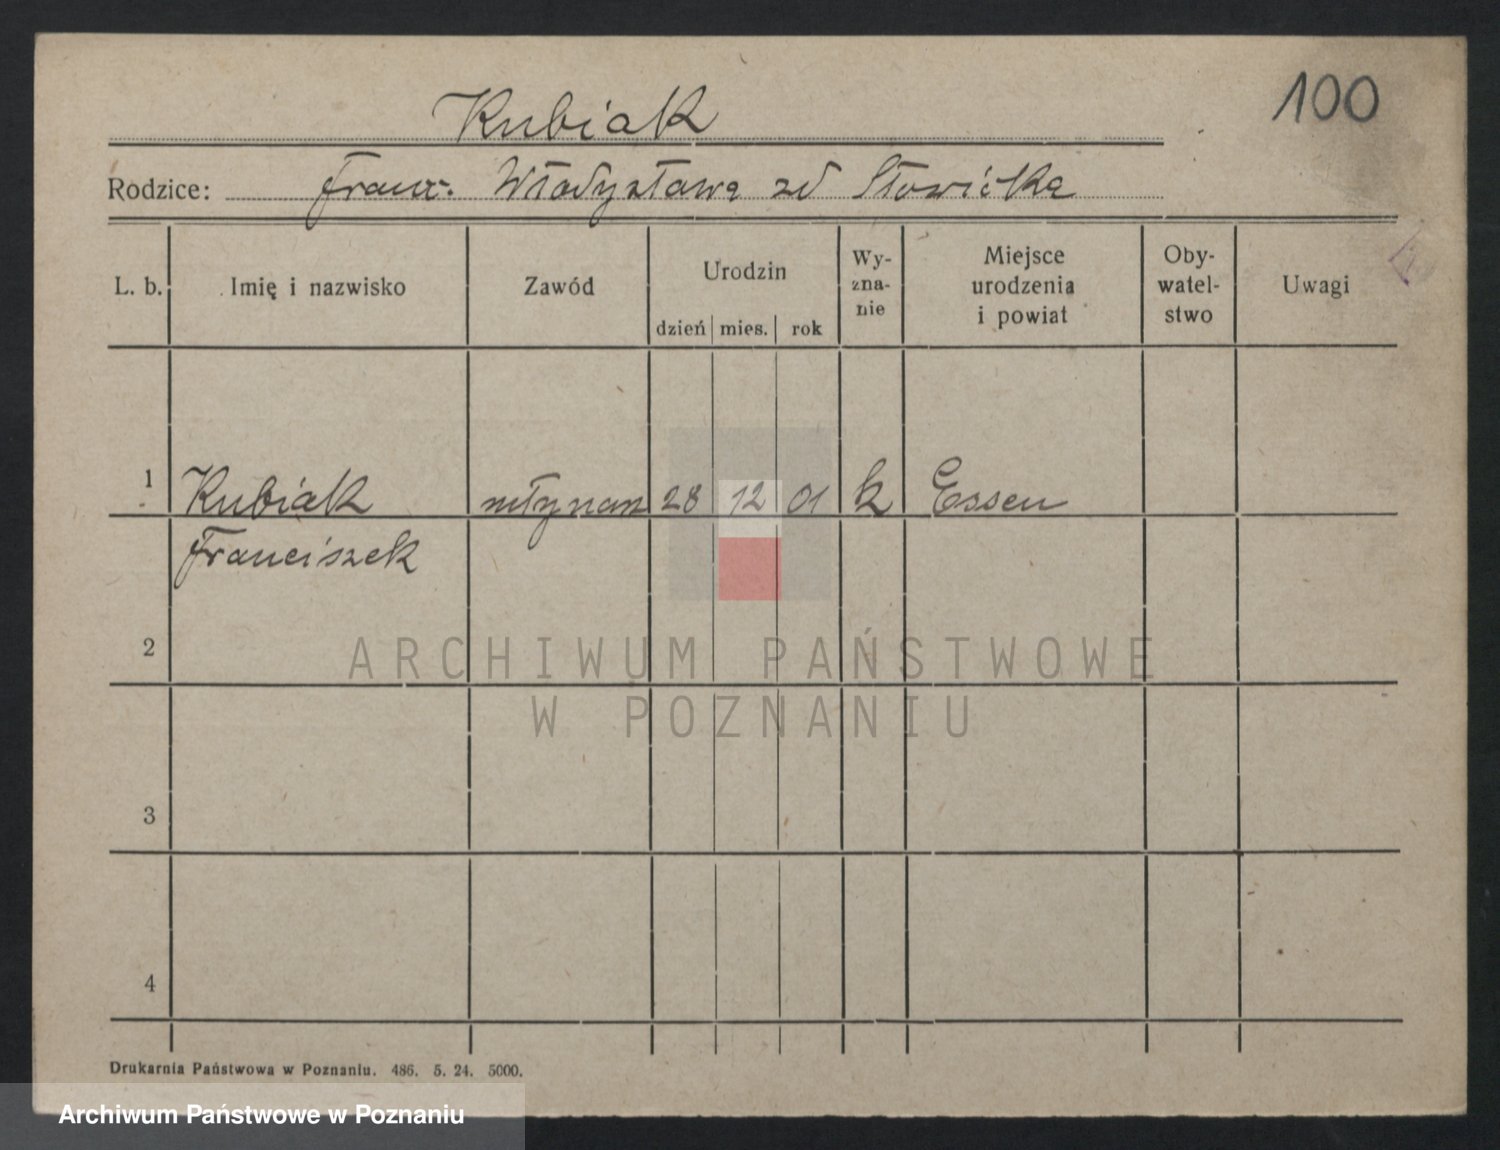 100
Kubiak
Rodzice: Franc. Władysława zd Słowińska
L. b. Imię i nazwisko Zawód Urodzin dzień mies. rok Wy-zna-nie Miejsce urodzenia i powiat Oby-watel-stwo Uwagi
1 Kubiak młynarz 28 12 01 k Essen
Franciszek
2
3
4
ARCHIWUM PAŃSTWOWE
W POZNANIU
Drukarnia Państwowa w Poznaniu. 486. 5. 24. 5000.
Archiwum Państwowe w Poznaniu